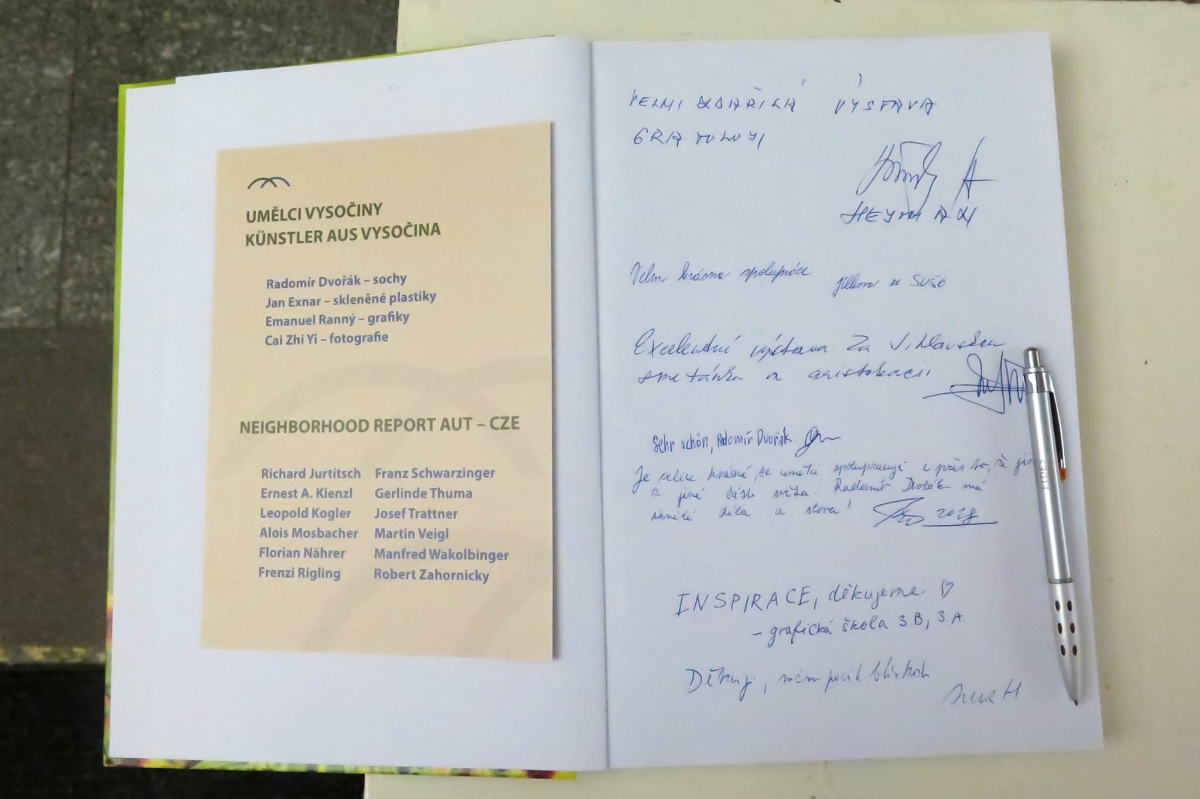 UMĚLCI VYSOČINY
KÜNSTLER AUS VYSOČINA
Radomír Dvořák – sochy
Jan Exnar – skleněné plastiky
Emanuel Ranný – grafiky
Cai Zhi Yi – fotografie
NEIGHBORHOOD REPORT AUT – CZE
Richard Jurtitsch Franz Schwarzinger
Ernest A. Kienzl Gerlinde Thuma
Leopold Kogler Josef Trattner
Alois Mosbacher Martin Veigl
Florian Nährer Manfred Wakolbinger
Frenzi Rigling Robert Zahornicky
VELMI ZDAŘILÁ VÝSTAVA
GRATULUJI
HEYMAN
Velmi krásná spolupráce
ze SUŠG
Excelentní výstava Za Jihlavskou
smetánku a aristokracii
Sehr schön, Radomír Dvořák.
Je velice krásné, že umělci spolupracují i přes to, že jsou
z jiné části světa. Radomír Dvořák má
díla a slova!
INSPIRACE, děkujeme ♡
– grafická škola 3.B, 3.A.
Děkuji, mám pocit blízkosti.